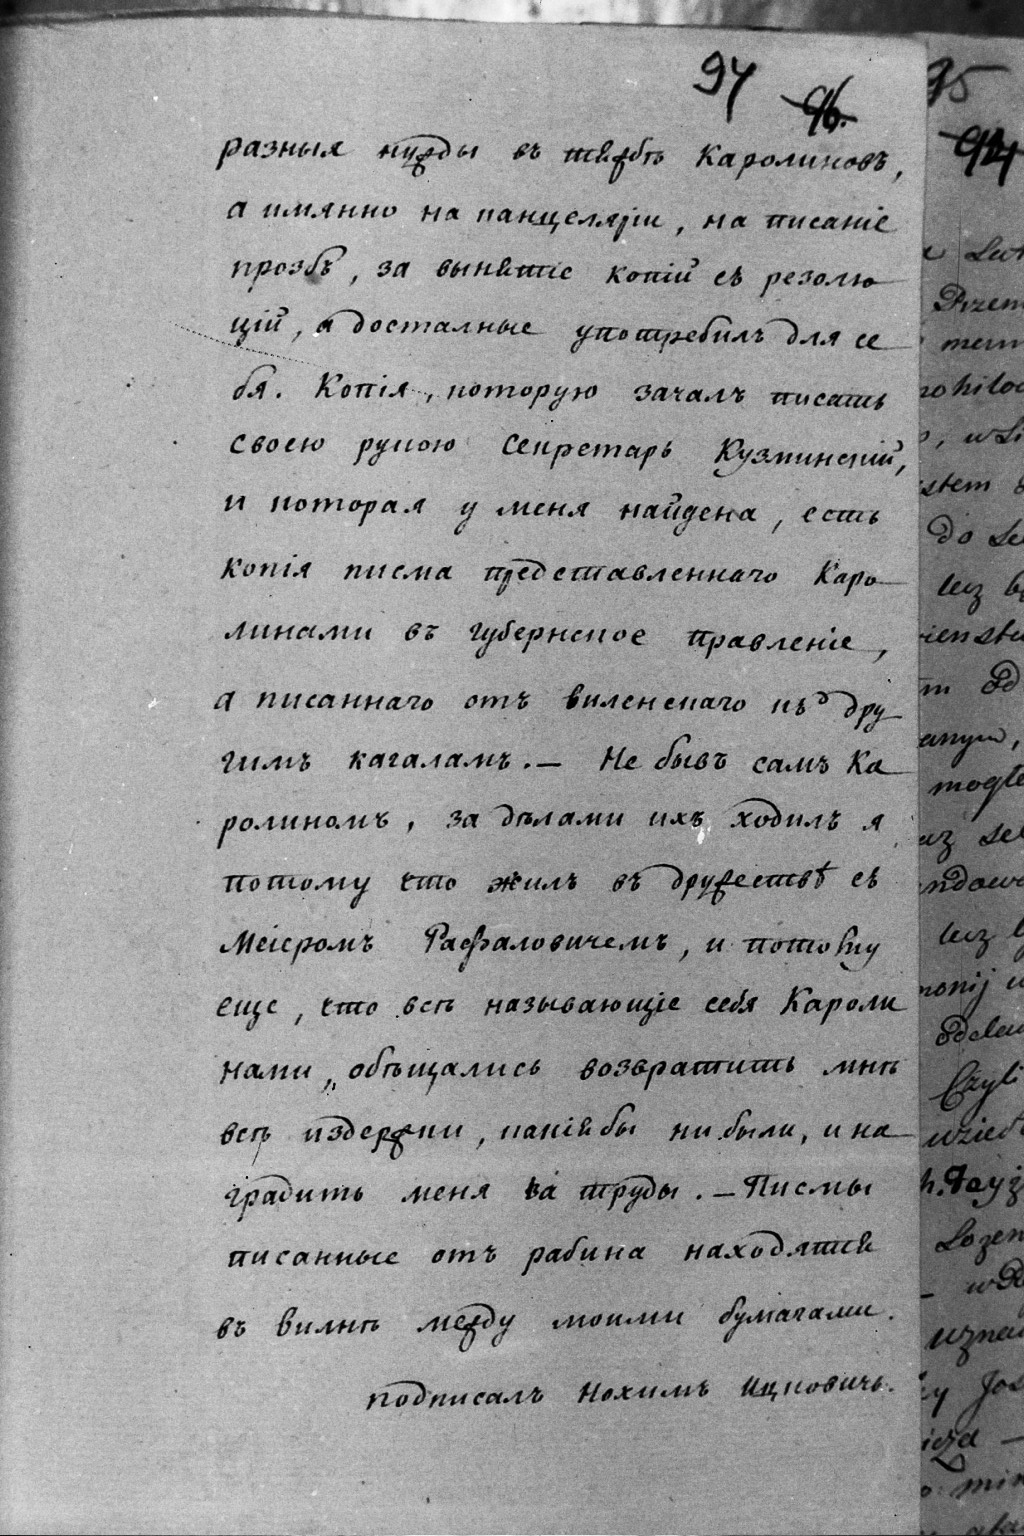 94
96.
разныя нужды въ тяжбѣ Каролиновъ,
а имянно на канцеляріи, на писаніе
прозбъ, за вынятіе копій съ резолю
цій, а досталные употребилъ для се
бя. Копія, которую зачалъ писать
своею рукою Секретарь Кузминскій,
и которая у меня найдена, есть
копія писма представленнаго Каро
линами въ губернское правленіе,
а писаннаго отъ виленскаго къ дру
гимъ кагаламъ. — Не бывъ самъ Ка
ролиномъ, за дѣлами ихъ ходилъ я
потому что жилъ въ дружествѣ съ
Меіеромъ Рафаловичемъ, и потому
еще, что всѣ называющіе себя Кароли
нами, обѣщались возвратить мнѣ
всѣ издержки, какіябы ни были, и на
градить меня за труды. — Писмы
писанные отъ рабина находятся
въ вилнѣ между моими бумагами.
подписалъ Нохимъ Ицковичь.
95
94
Przem
do se
lecz b
od
mogłe
lecz
Czyli